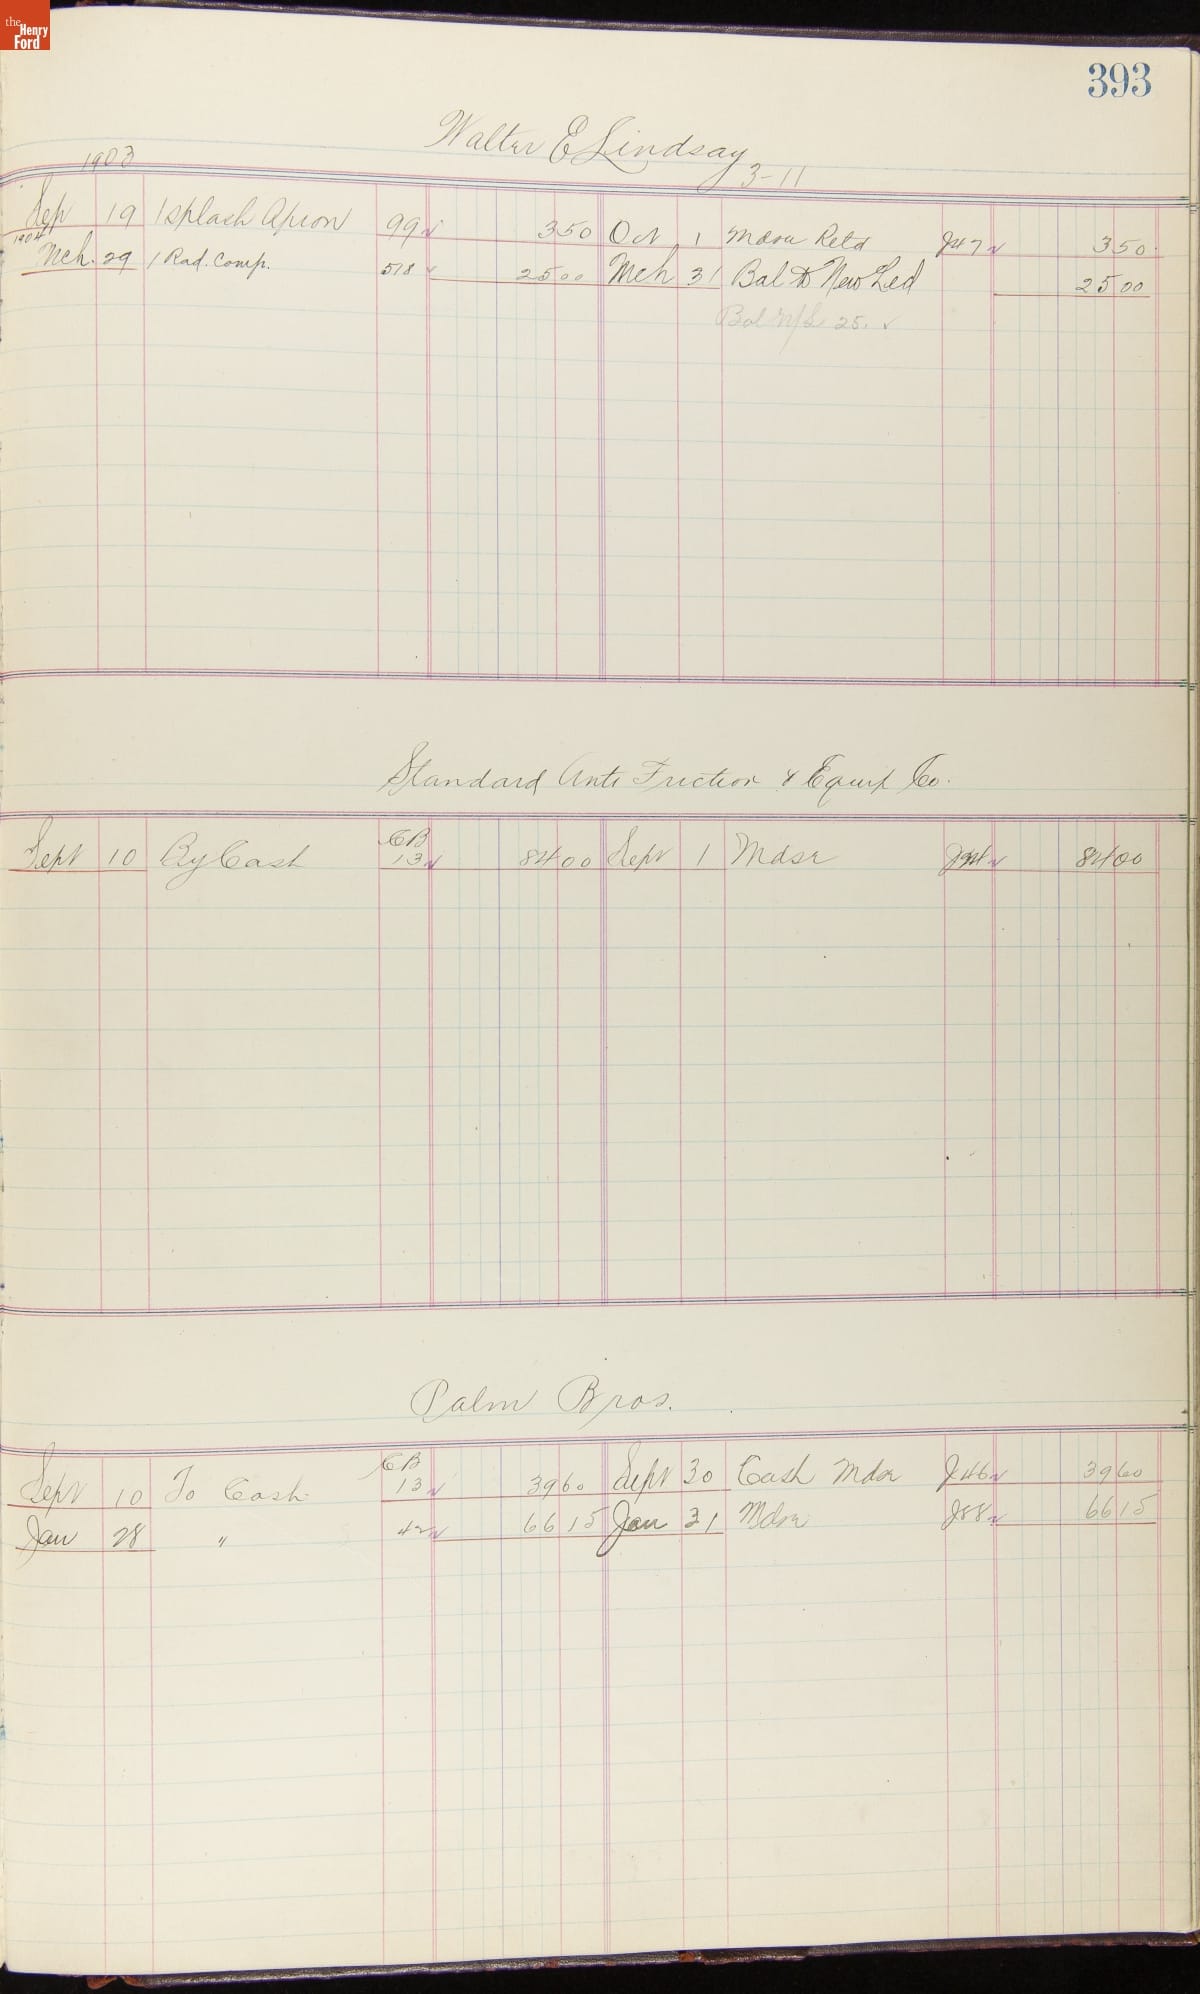 the Henry Ford
393
Walter E Lindsay
3-11
1903
Sep 19 1 Splash Apron 99 3 50 Oct 1 Mdse Retd J47 3 50
1904
Mch. 29 1 Rad. Comp. 518 25 00 Mch 31 Bal to New Led 25 00
Bal N/L 25.
Standard Anti Friction & Equip Co.
Sept 10 By Cash CB 13 84 00 Sept 1 Mdse J34 84 00
Palm Bros.
Sept 10 To Cash CB 13 39 60 Sept 30 Cash Mdse J46 39 60
Jan 28 " 42 66 15 Jan 31 Mdse J88 66 15